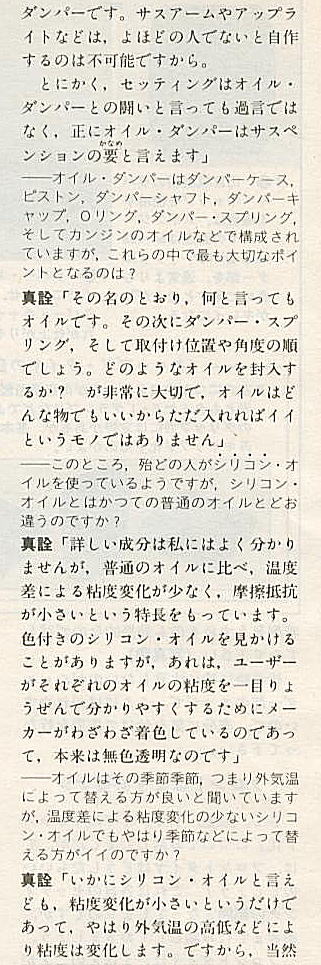 ダンパーです。サスアームやアップラ
イトなどは，よほどの人でないと自作
するのは不可能ですから。
　とにかく，セッティングはオイル・
ダンパーとの闘いと言っても過言では
なく，正にオイル・ダンパーはサスペ
かなめ
ンションの要と言えます」
──オイル・ダンパーはダンパーケース，
ピストン，ダンパーシャフト，ダンパーキ
ャップ，Oリング，ダンパー・スプリング，
そしてカンジンのオイルなどで構成され
ていますが，これらの中で最も大切なポイ
ントとなるのは？
真詮「その名のとおり，何と言っても
オイルです。その次にダンパー・スプ
リング，そして取付け位置や角度の順
でしょう。どのようなオイルを封入す
るか？　が非常に大切で，オイルはど
んな物でもいいからただ入れればイイ
というモノではありません」
──このところ，殆どの人がシリコン・オ
イルを使っているようですが，シリコン・
オイルとはかつての普通のオイルとどお
違うのですか？
真詮「詳しい成分は私にはよく分かり
ませんが，普通のオイルに比べ，温度
差による粘度変化が少なく，摩擦抵抗
が小さいという特長をもっています。
色付きのシリコン・オイルを見かける
ことがありますが，あれは，ユーザー
がそれぞれのオイルの粘度を一目りょ
うぜんで分かりやすくするためにメー
カーがわざわざ着色しているのであっ
て，本来は無色透明なのです」
──オイルはその季節季節，つまり外気温
によって替える方が良いと聞いています
が，温度差による粘度変化の少ないシリコ
ン・オイルでもやはり季節などによって替
える方がイイのですか？
真詮「いかにシリコン・オイルと言え
ども，粘度変化が小さいというだけで
あって，やはり外気温の高低などによ
り粘度は変化します。ですから，当然